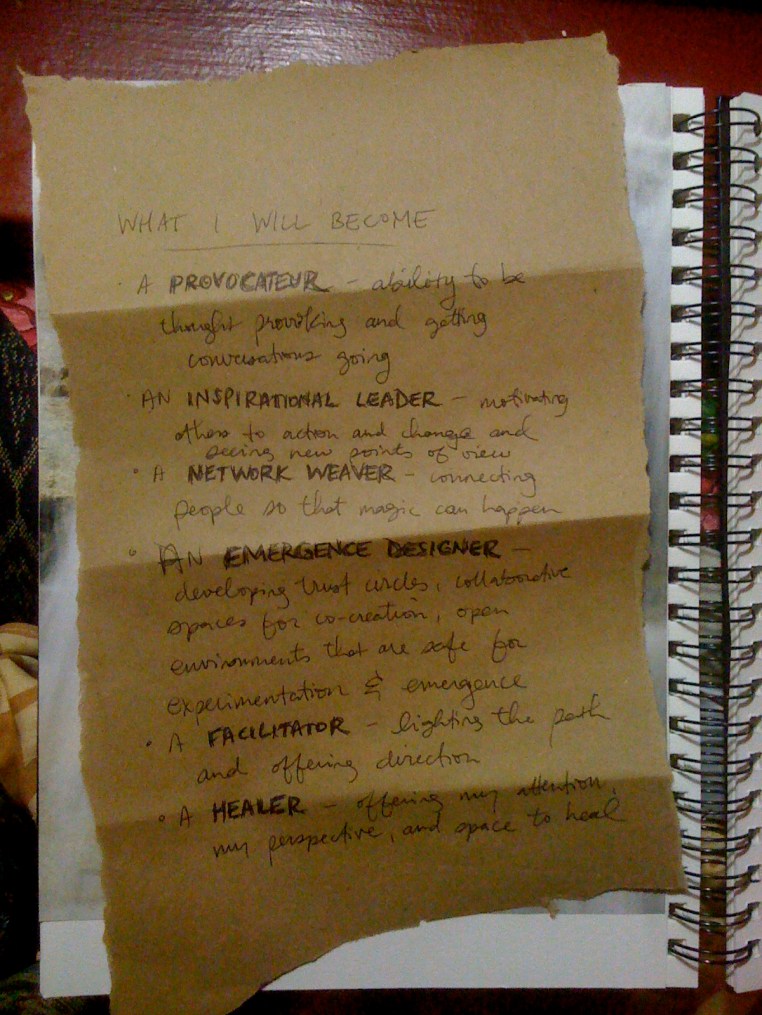 WHAT I WILL BECOME
· A PROVOCATEUR - ability to be
thought provoking and getting
conversations going
· AN INSPIRATIONAL LEADER - motivating
others to action and change and
seeing new points of view
· A NETWORK WEAVER - connecting
people so that magic can happen
· AN EMERGENCE DESIGNER -
developing trust circles, collaborative
spaces for co-creation, open
environments that are safe for
experimentation & emergence
· A FACILITATOR - lighting the path
and offering direction
· A HEALER - offering my attention,
my perspective, and space to heal